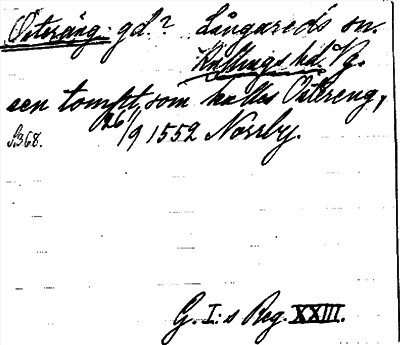 Österäng. gd.? Långareds sn.
Kullings hd. Vg.
een tompt, som kalles Östereng,
S.368. 26/9 1552 Norrby.
G. I:s Reg. XXIII.